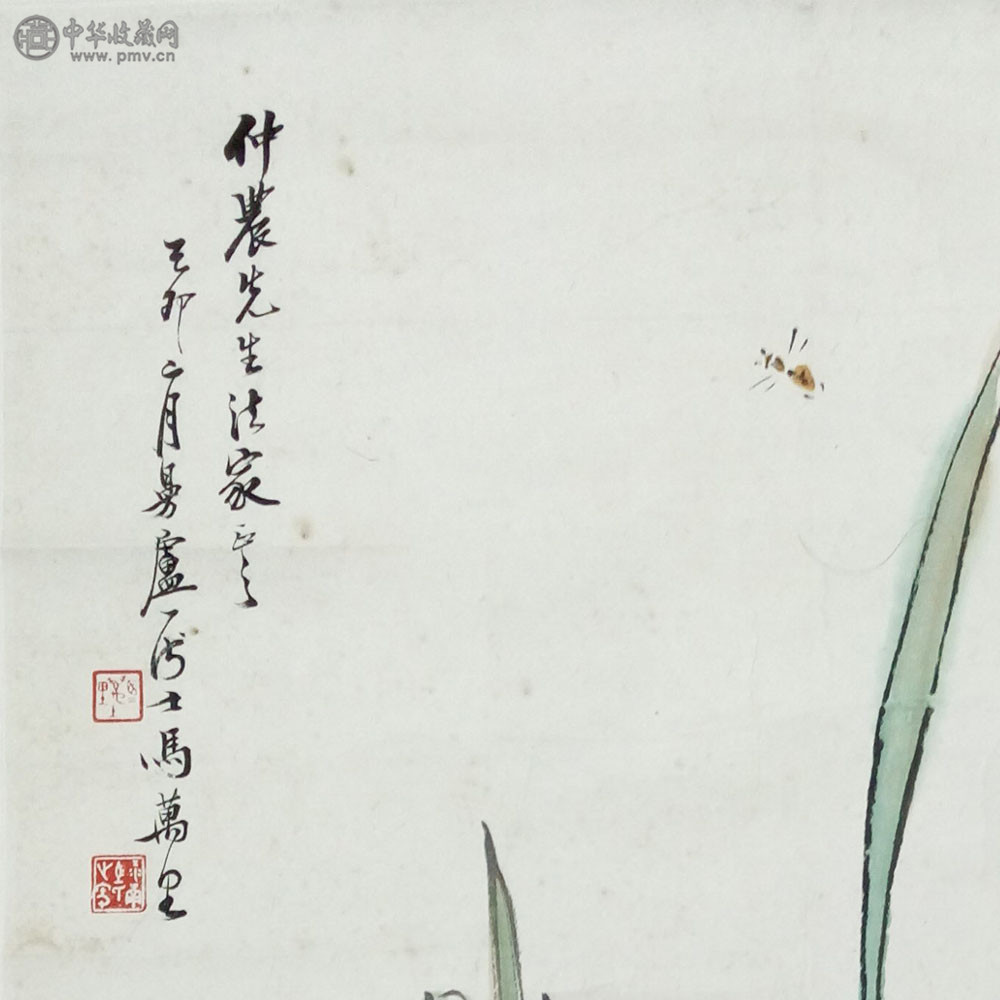 中华收藏网
www.pmv.cn
仲農先生法家正之
己卯二月曼廬居士馮萬里